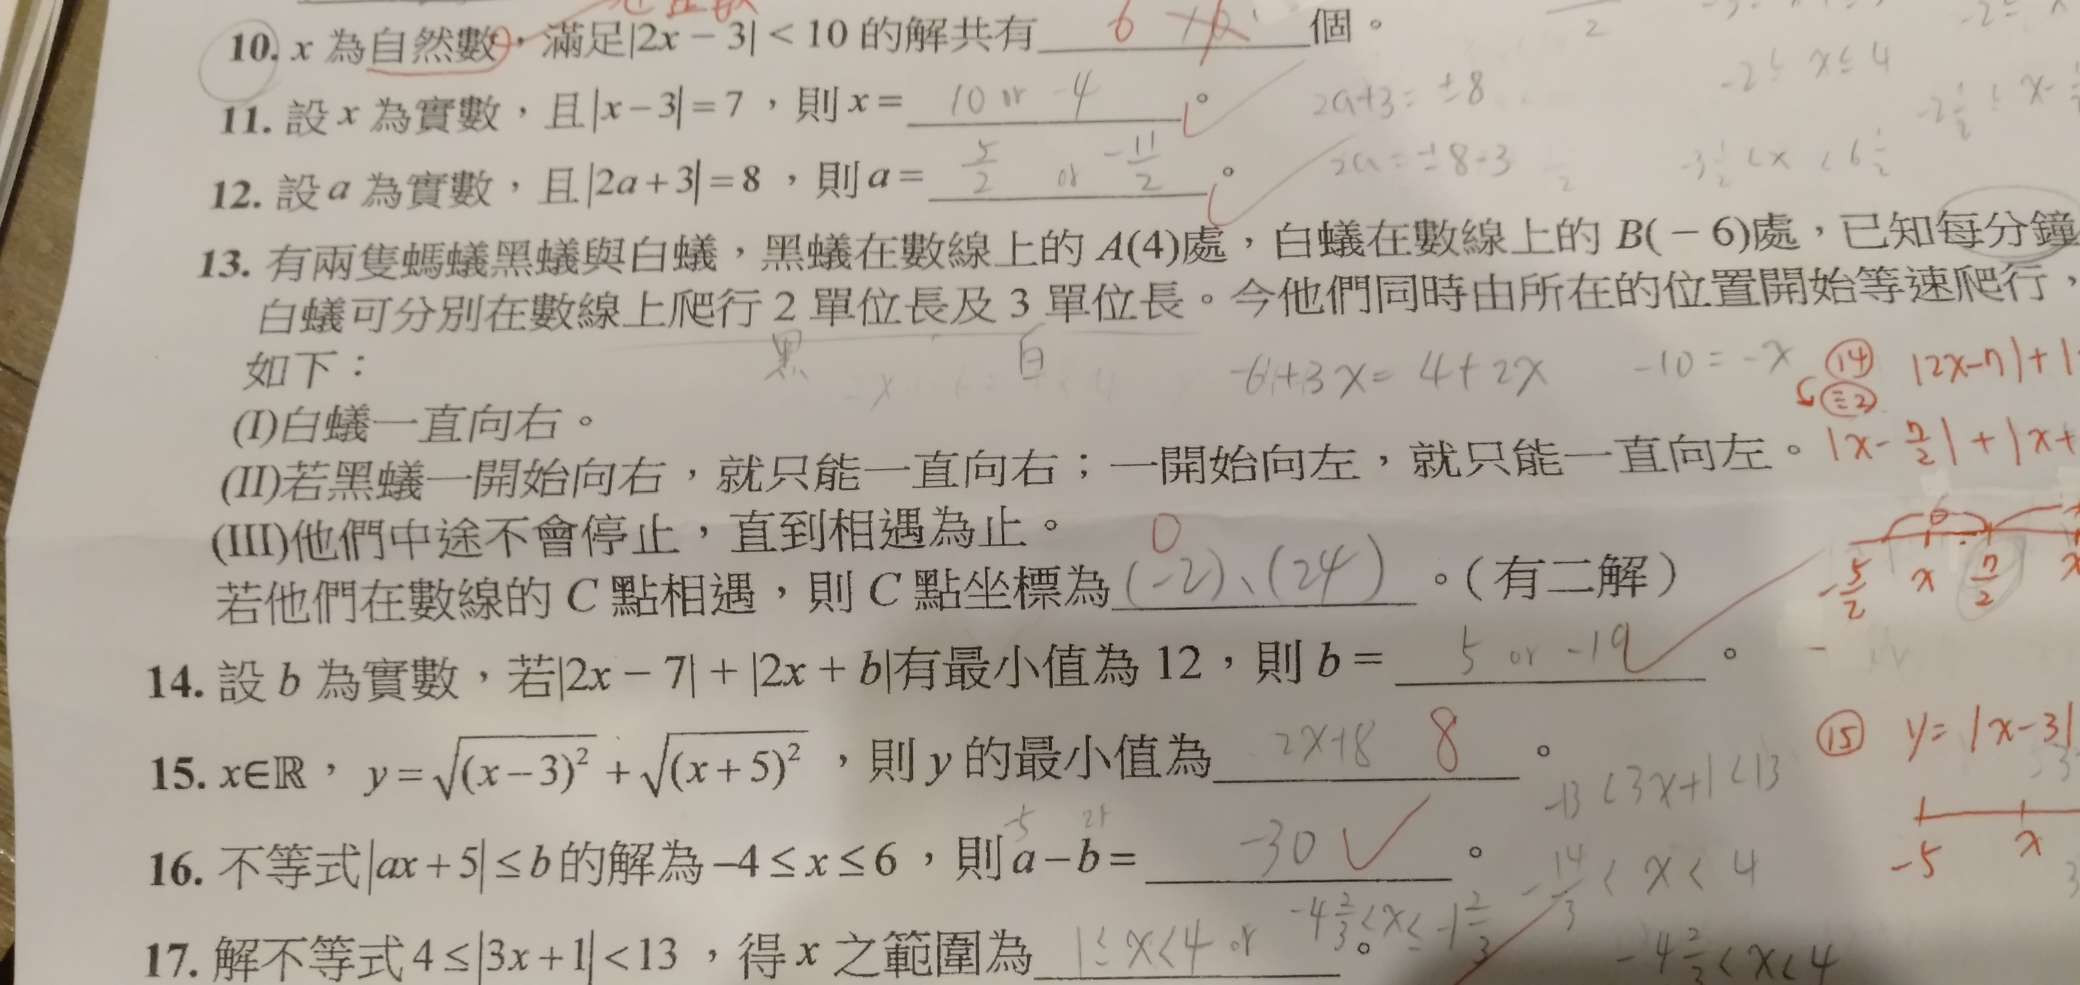 10. x 為自然數，滿足|2x－3|＜10 的解共有 6 個。
11. 設 x 為實數，且|x－3|＝7，則 x＝ 10 or -4 。
2a+3= ±8
-2≤ x≤ 4
12. 設 a 為實數，且|2a＋3|＝8，則 a＝ 5/2 or -11/2 。
2a = ±8-3
-3 1/2 < x < 6 1/2
13. 有兩隻螞蟻黑蟻與白蟻，黑蟻在數線上的 A(4)處，白蟻在數線上的 B(－6)處，已知每分鐘
白蟻可分別在數線上爬行 2 單位長及 3 單位長。今他們同時由所在的位置開始等速爬行，
黑 白
如下：
-6+3x= 4+2x
-10 = -x
⑭ |2x-7|+|
(I)白蟻一直向右。
(II)若黑蟻一開始向右，就只能一直向右；一開始向左，就只能一直向左。
|x- 7/2|+|x+
(III)他們中途不會停止，直到相遇為止。
0
6
-5/2 x 7/2 x
若他們在數線的 C 點相遇，則 C 點坐標為 (-2)、(24) 。（有二解）
14. 設 b 為實數，若|2x－7|＋|2x＋b|有最小值為 12，則 b＝ 5 or -19 。
15. x∈ℝ，y＝√(x－3)²＋√(x＋5)²，則 y 的最小值為 2x+8 8 。
⑮ y= |x-3|
-13 <3x+1 <13
-5 x
16. 不等式|ax＋5|≤b 的解為－4≤x≤6，則 a－b＝ -30 。
-5
-14/3 < x < 4
17. 解不等式 4≤|3x＋1|＜13，得 x 之範圍為 1≤x<4 or -4 2/3<x≤ -1 2/3 。
-4 2/3 < x < 4